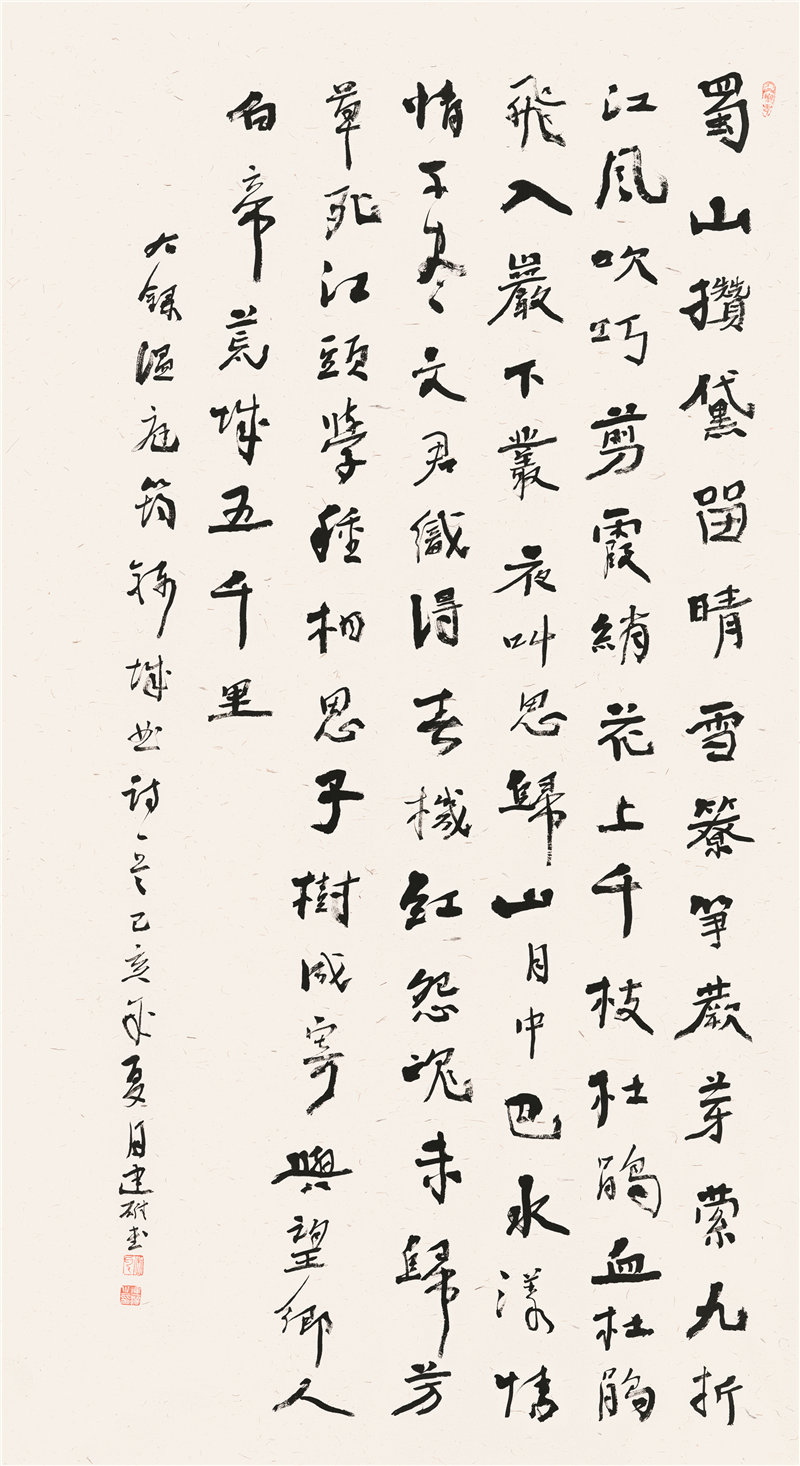 蜀山攢黛留晴雪簝笋蕨芽縈九折
江風吹巧剪霞綃花上千枝杜鵑血杜鵑
飛入巖下叢夜叫思歸山月中巴水漾情
情不盡文君織得春機紅怨魂未歸芳
草死江頭學種相思子樹成寄與望鄉人
白帝荒城五千里
右錄溫庭筠錦城曲詩一首己亥年夏月建書